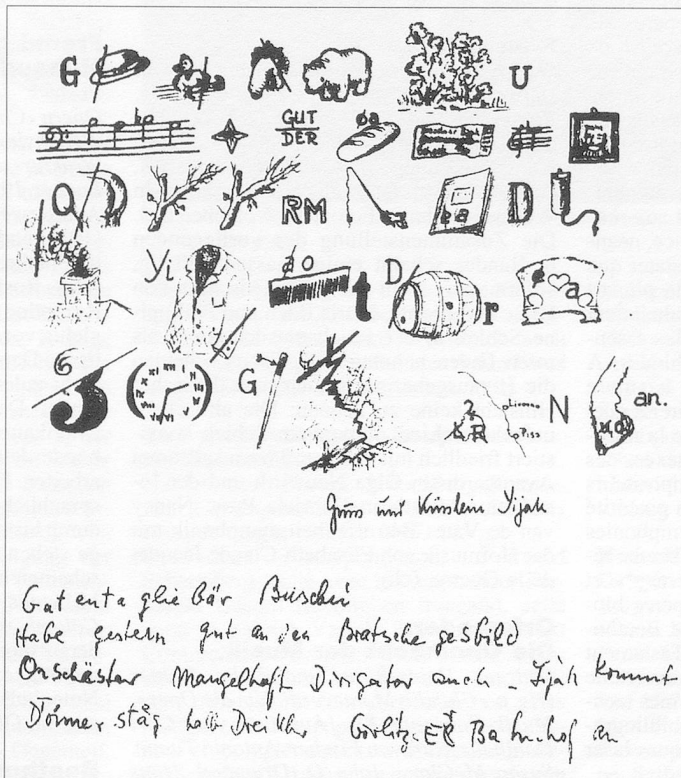 G U
GUT
DER
Q RM D
Vi t D r
6
3 ( ) G 2 KR Pisa N an.
Gruss und Küsslein Yijak
Gut enta glie bör Buschi
Habe gestern gut an den Bratsche gesbild
Onschäster mangelhaft Dirigator auch – Yijak kommt
Dörmer ståg halb Drei Uhr Görlitz:ER Bahnhof an.